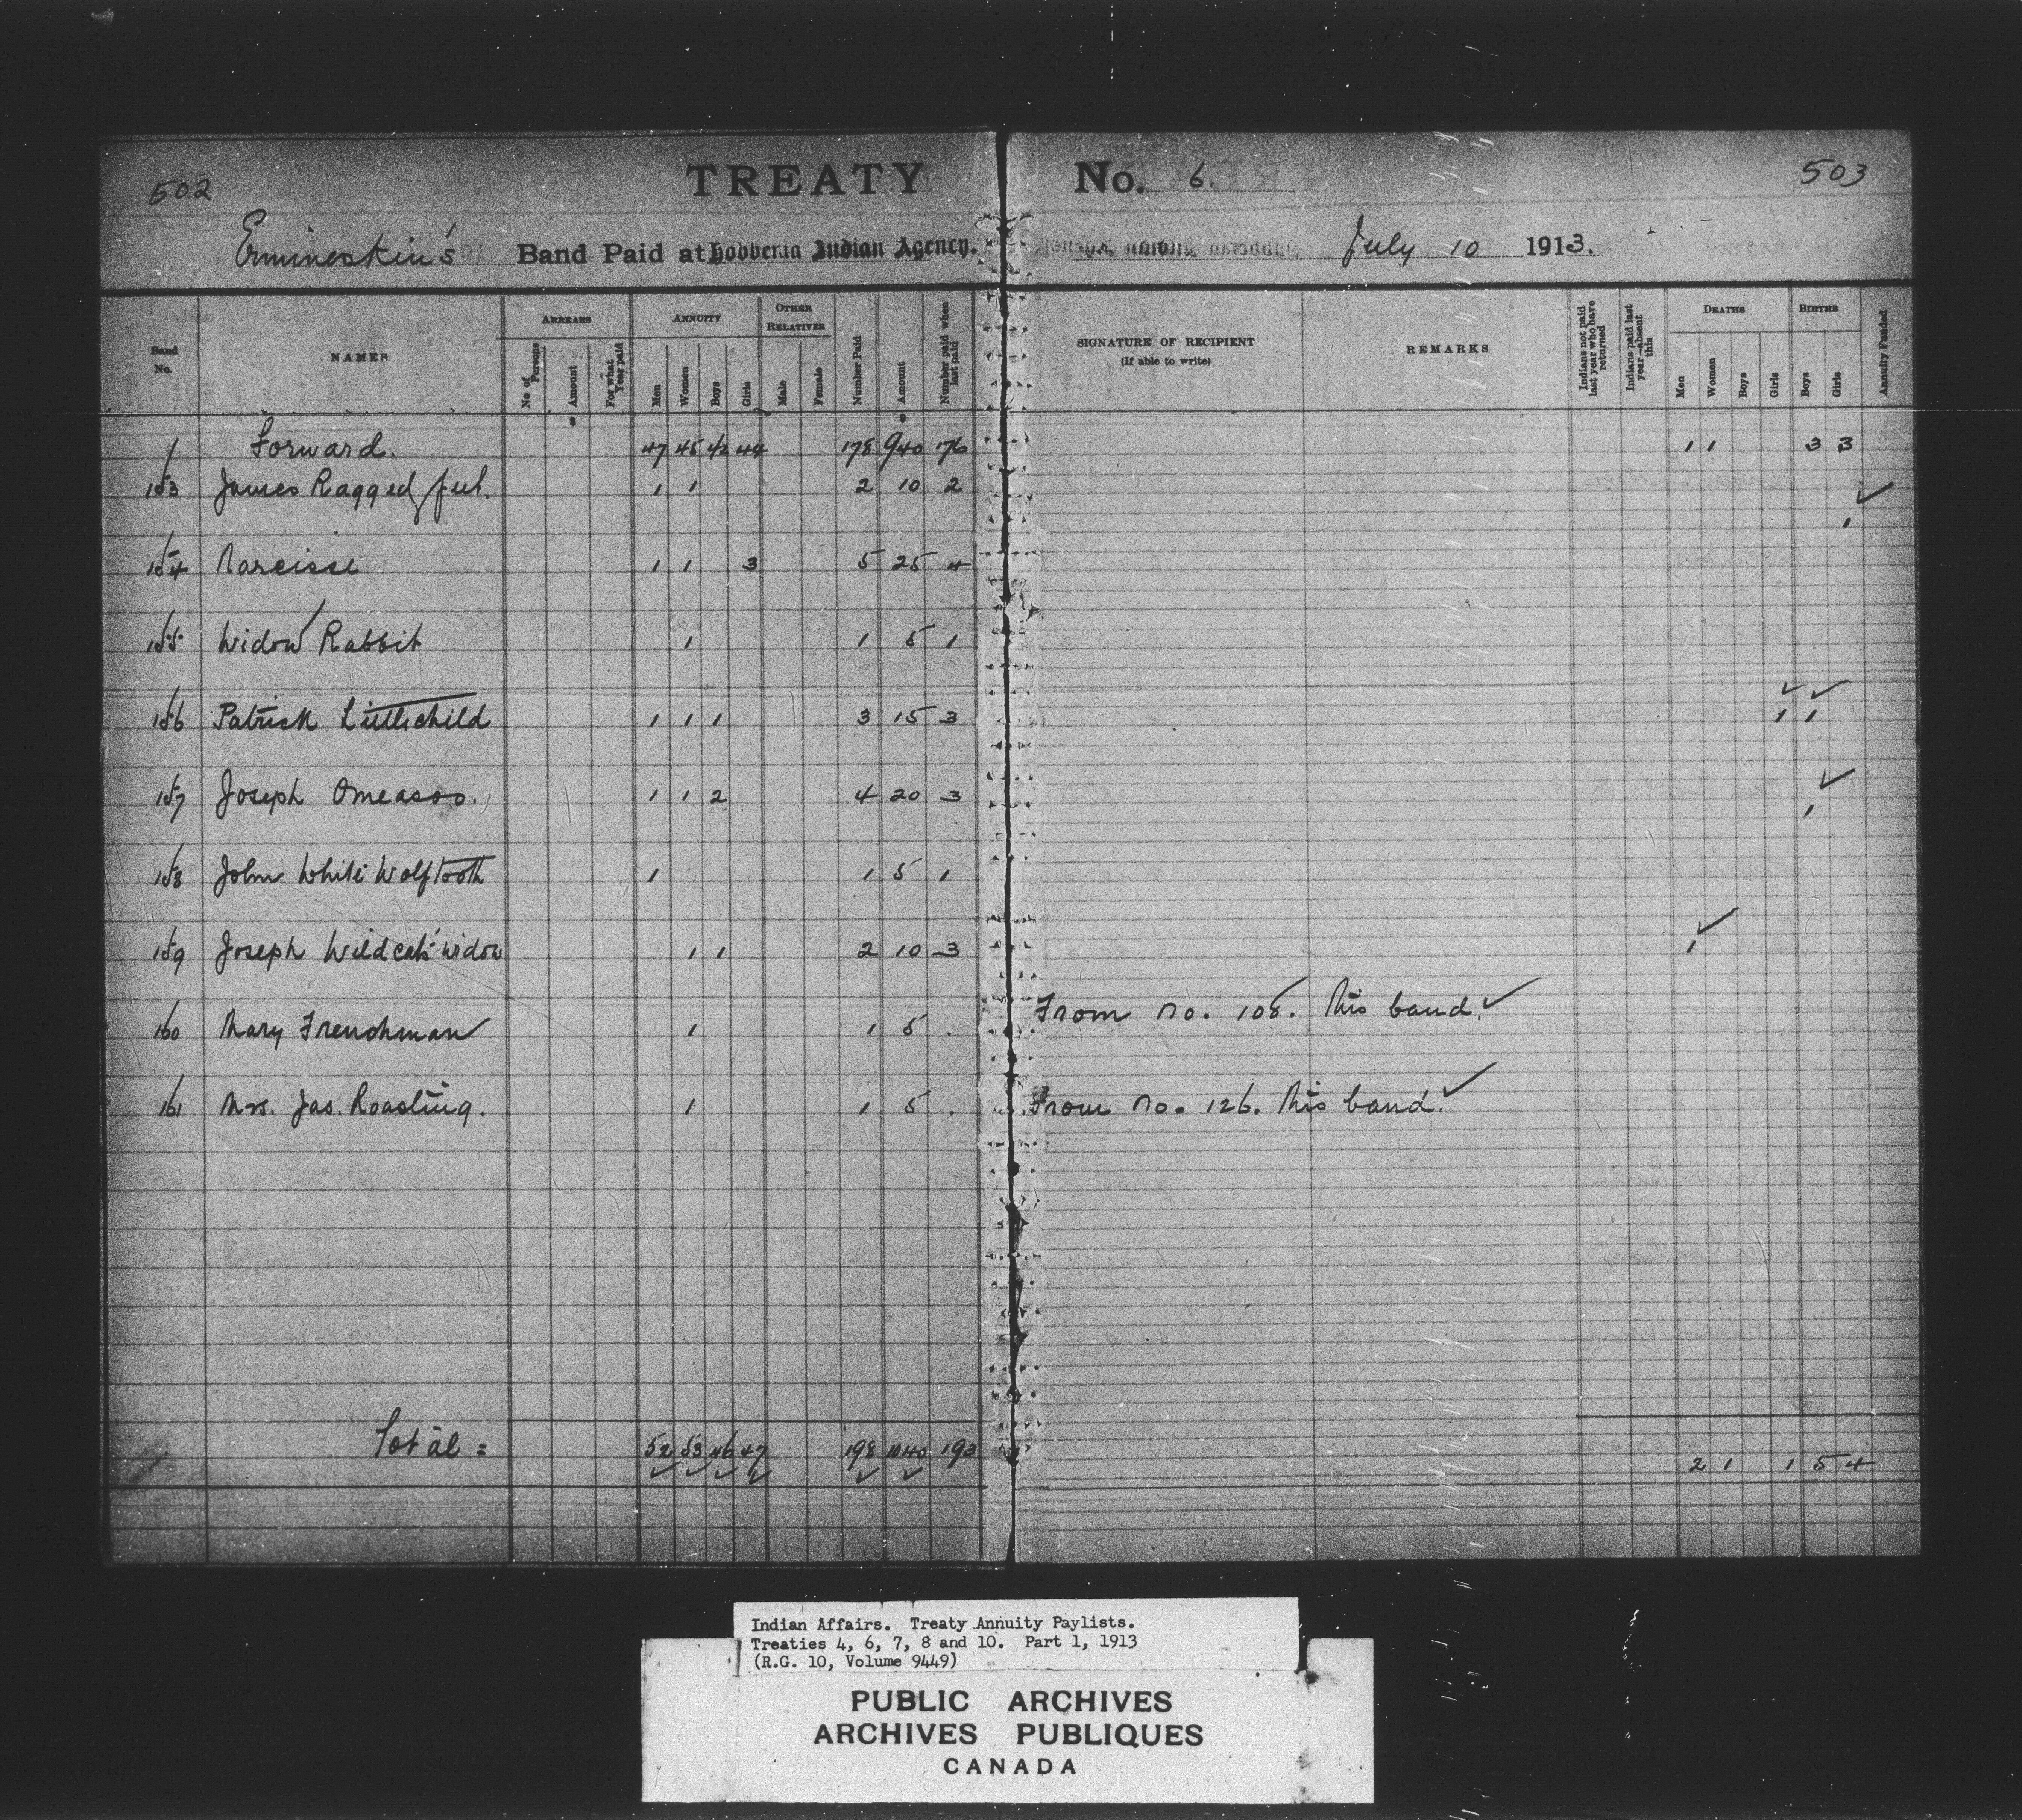 502 TREATY No. 6. 503
Ermineskin's Band Paid at Hobbema Indian Agency. July 10 1913.
Band No. NAMES ARREARS ANNUITY OTHER RELATIVES Number Paid Amount Number paid when last paid SIGNATURE OF RECIPIENT (If able to write) REMARKS Indians not paid last year who have returned Indians paid last year—absent this DEATHS BIRTHS Annuity Funded
No. of Persons Amount For what Year paid Men Women Boys Girls Male Female Men Women Boys Girls Boys Girls
Forward. 47 45 42 44 178 940 176 1 1 3 3
153 James Ragged 1 1 2 10 2
154 Narcisse 1 1 3 5 25 4 1
155 Widow Rabbit 1 1 5 1
156 Patrick Littlechild 1 1 1 3 15 3 1 1
157 Joseph Omeasoo. 1 1 2 4 20 3 1
158 John White Wolftooth 1 1 5 1
159 Joseph Wildcat's widow 1 1 2 10 3 1
160 Mary Frenchman 1 1 5 . From no. 108. this band.
161 Mrs. Jas. Roasting. 1 1 5 . From no. 126. this band.
Total = 52 53 46 47 198 1040 193 2 1 1 5 4
Indian Affairs. Treaty Annuity Paylists.
Treaties 4, 6, 7, 8 and 10. Part 1, 1913
(R.G. 10, Volume 9449)
PUBLIC ARCHIVES
ARCHIVES PUBLIQUES
CANADA